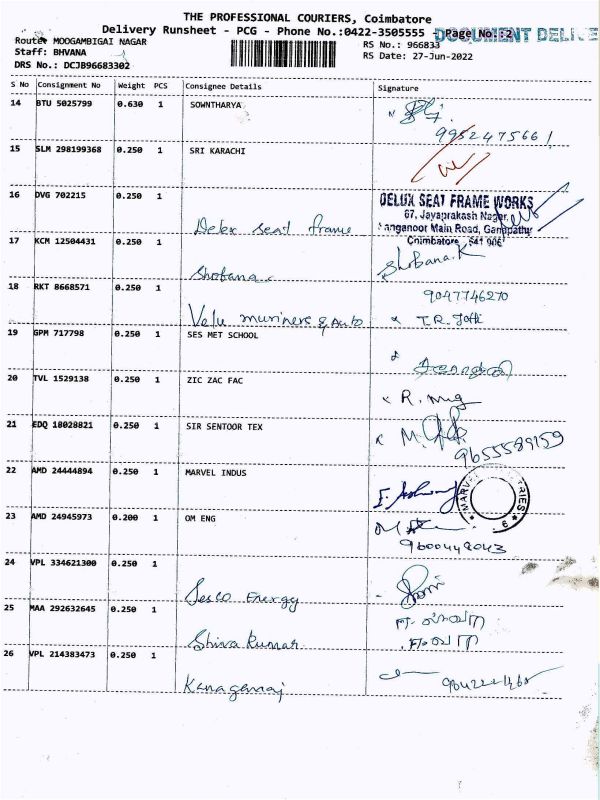 THE PROFESSIONAL COURIERS, Coimbatore
Delivery Runsheet - PCG - Phone No.:0422-3505555 - Page No.:2
DOCUMENT DELIVE
Route: MOOGAMBIGAI NAGAR
RS No.: 966833
Staff: BHVANA
RS Date: 27-Jun-2022
DRS No.: DCJB96683302
S No Consignment No Weight PCS Consignee Details Signature
14 BTU 5025799 0.630 1 SOWNTHARYA
9952475661
15 SLM 298199368 0.250 1 SRI KARACHI
16 DVG 702215 0.250 1
Delex seat frame
DELUX SEAT FRAME WORKS
67, Jayaprakash Nagar,
Coimbatore 641 006
17 KCM 12504431 0.250 1
Shobana
Shobana.K
18 RKT 8668571 0.250 1
9047746270
Velu muriners & Auto
19 GPM 717798 0.250 1 SES MET SCHOOL
20 TVL 1529138 0.250 1 ZIC ZAC FAC
21 EDQ 18028821 0.250 1 SIR SENTOOR TEX
9655589159
22 AMD 24444894 0.250 1 MARVEL INDUS
23 AMD 24945973 0.200 1 OM ENG
9600448043
24 VPL 334621300 0.250 1
Sesco Energy
25 MAA 292632645 0.250 1
Shiva Kumar
26 VPL 214383473 0.250 1
Kanagaraj